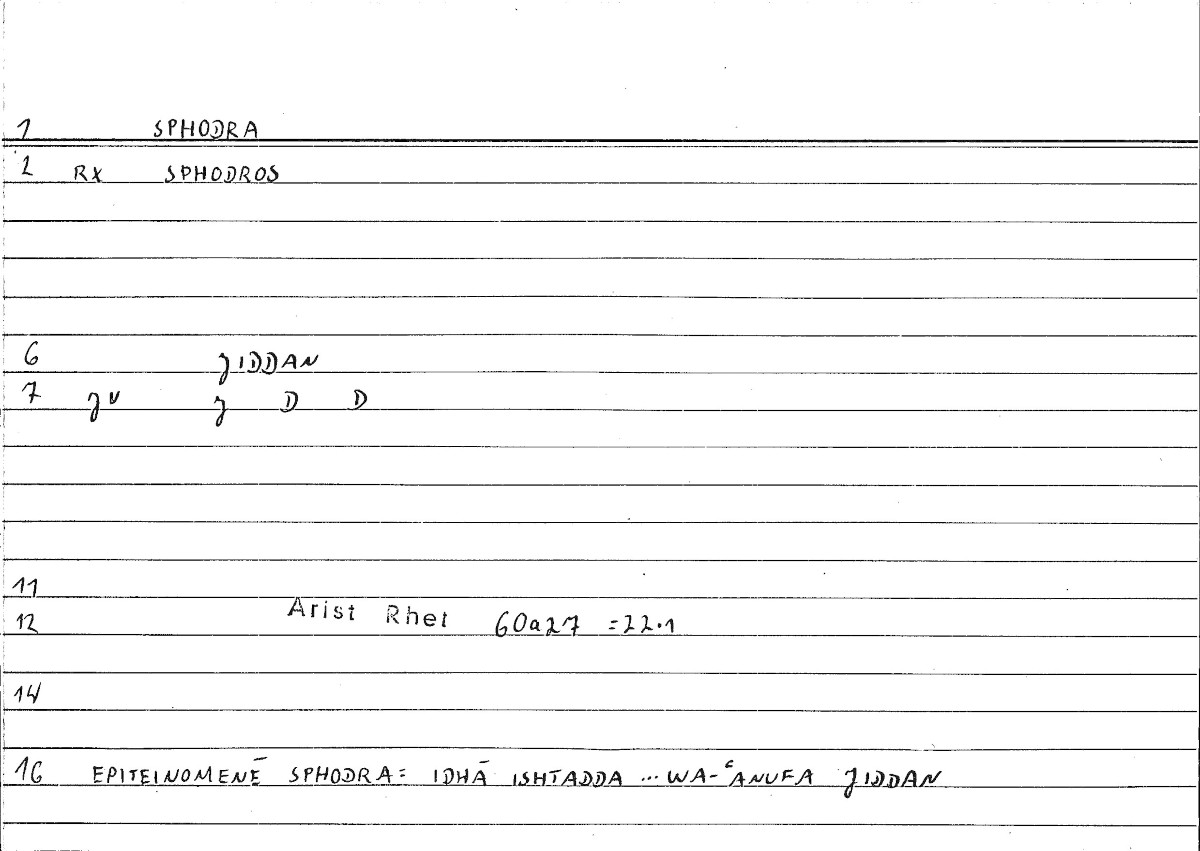 1 SPHODRA
2 RX SPHODROS
6 JIDDAN
7 JV J D D
11
12 Arist Rhet 60a27 =22.1
14
16 EPITEINOMENĒ SPHODRA= IDHĀ ISHTADDA ... WA-ʿANUFA JIDDAN